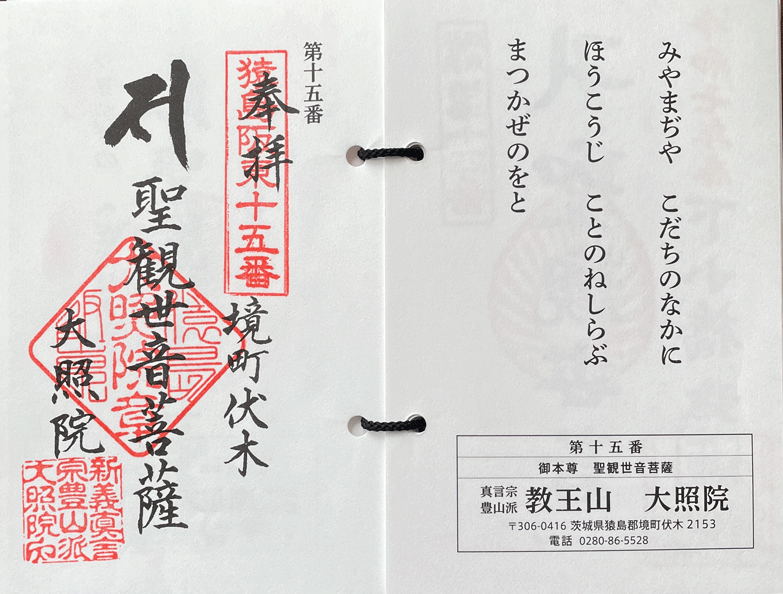 みやまぢや　こだちのなかに
ほうこうじ　ことのねしらぶ
まつかぜのをと
第十五番
御本尊　聖観世音菩薩
真言宗
豊山派
教王山　大照院
〒306-0416 茨城県猿島郡境町伏木 2153
電話 0280-86-5528
第十五番
奉拝
猿島阪東十五番
境町伏木
聖観世音菩薩
大照院
新義真言
宗豊山派
大照院印